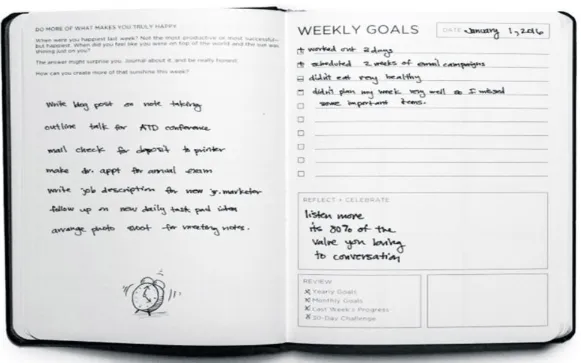 DO MORE OF WHAT MAKES YOU TRULY HAPPY
When were you happiest last week? Not the most productive or most successful—
but happiest. When did you feel like you were on top of the world and the sun was
shining just on you?
The answer might surprise you. Journal about it, and be really honest.
How can you create more of that sunshine this week?
write blog post on note taking
outline talk for ATD conference
mail check for deposit to printer
make dr. appt for annual exam
write job description for new jr. marketer
follow up on new daily task pad idea
arrange photo shoot for meeting notes.
WEEKLY GOALS
DATE January 1, 2016
+ worked out 2 days
+ scheduled 2 weeks of email campaigns
- didn't eat very healthy
- didn't plan my week very well so I missed
some important items.
REFLECT + CELEBRATE
listen more
its 80% of the
value you bring
to conversation
REVIEW
Yearly Goals
Monthly Goals
Last Week's Progress
30-Day Challenge